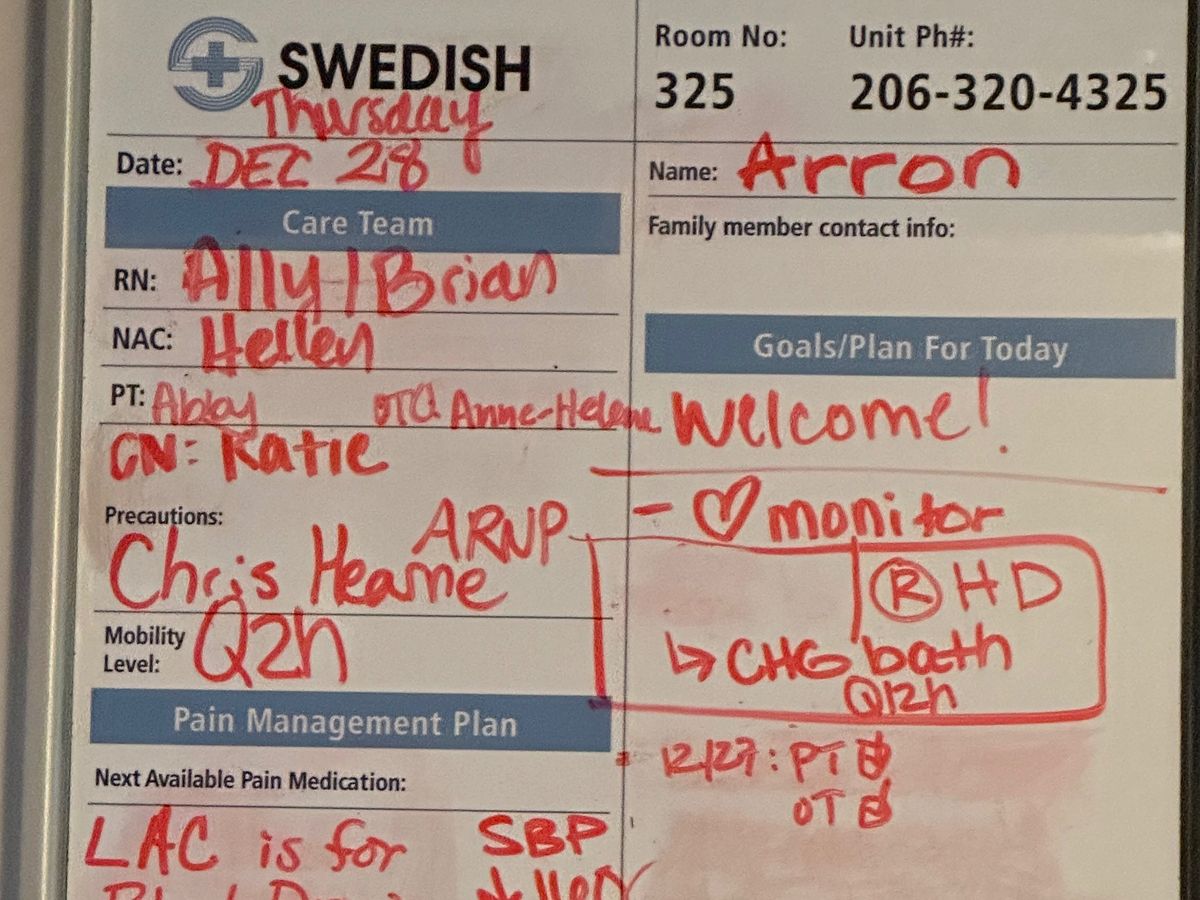 SWEDISH
Thursday
Date: DEC 28
Care Team
RN: Ally/Brian
NAC: Hellen
PT: Abby Anne-Helene
CN: Katie
Precautions: ARNP
Chris Hearne
Mobility Level: Q2h
Pain Management Plan
Next Available Pain Medication:
LAC is for SBP
Room No: Unit Ph#:
325 206-320-4325
Name: Arron
Family member contact info:
Goals/Plan For Today
Welcome!
- ♡ monitor
Ⓡ HD
↳ CHG bath
Q12h
12/27: PT ☑
OT ☑